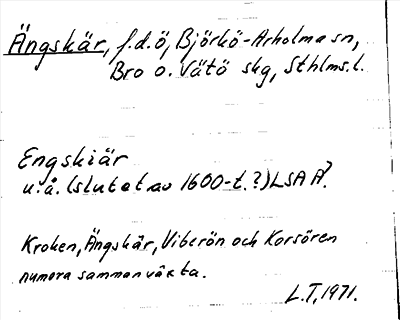 Ängskär, f.d.ö, Björkö-Arholma sn,
Bro o. Vätö skg, Sthlms.l.
Engskiär
u.å. (slutet av 1600-t.?) LSA A?.
Kroken, Ängskär, Viberön och Korsören
numera sammanväxta.
L.T, 1971.